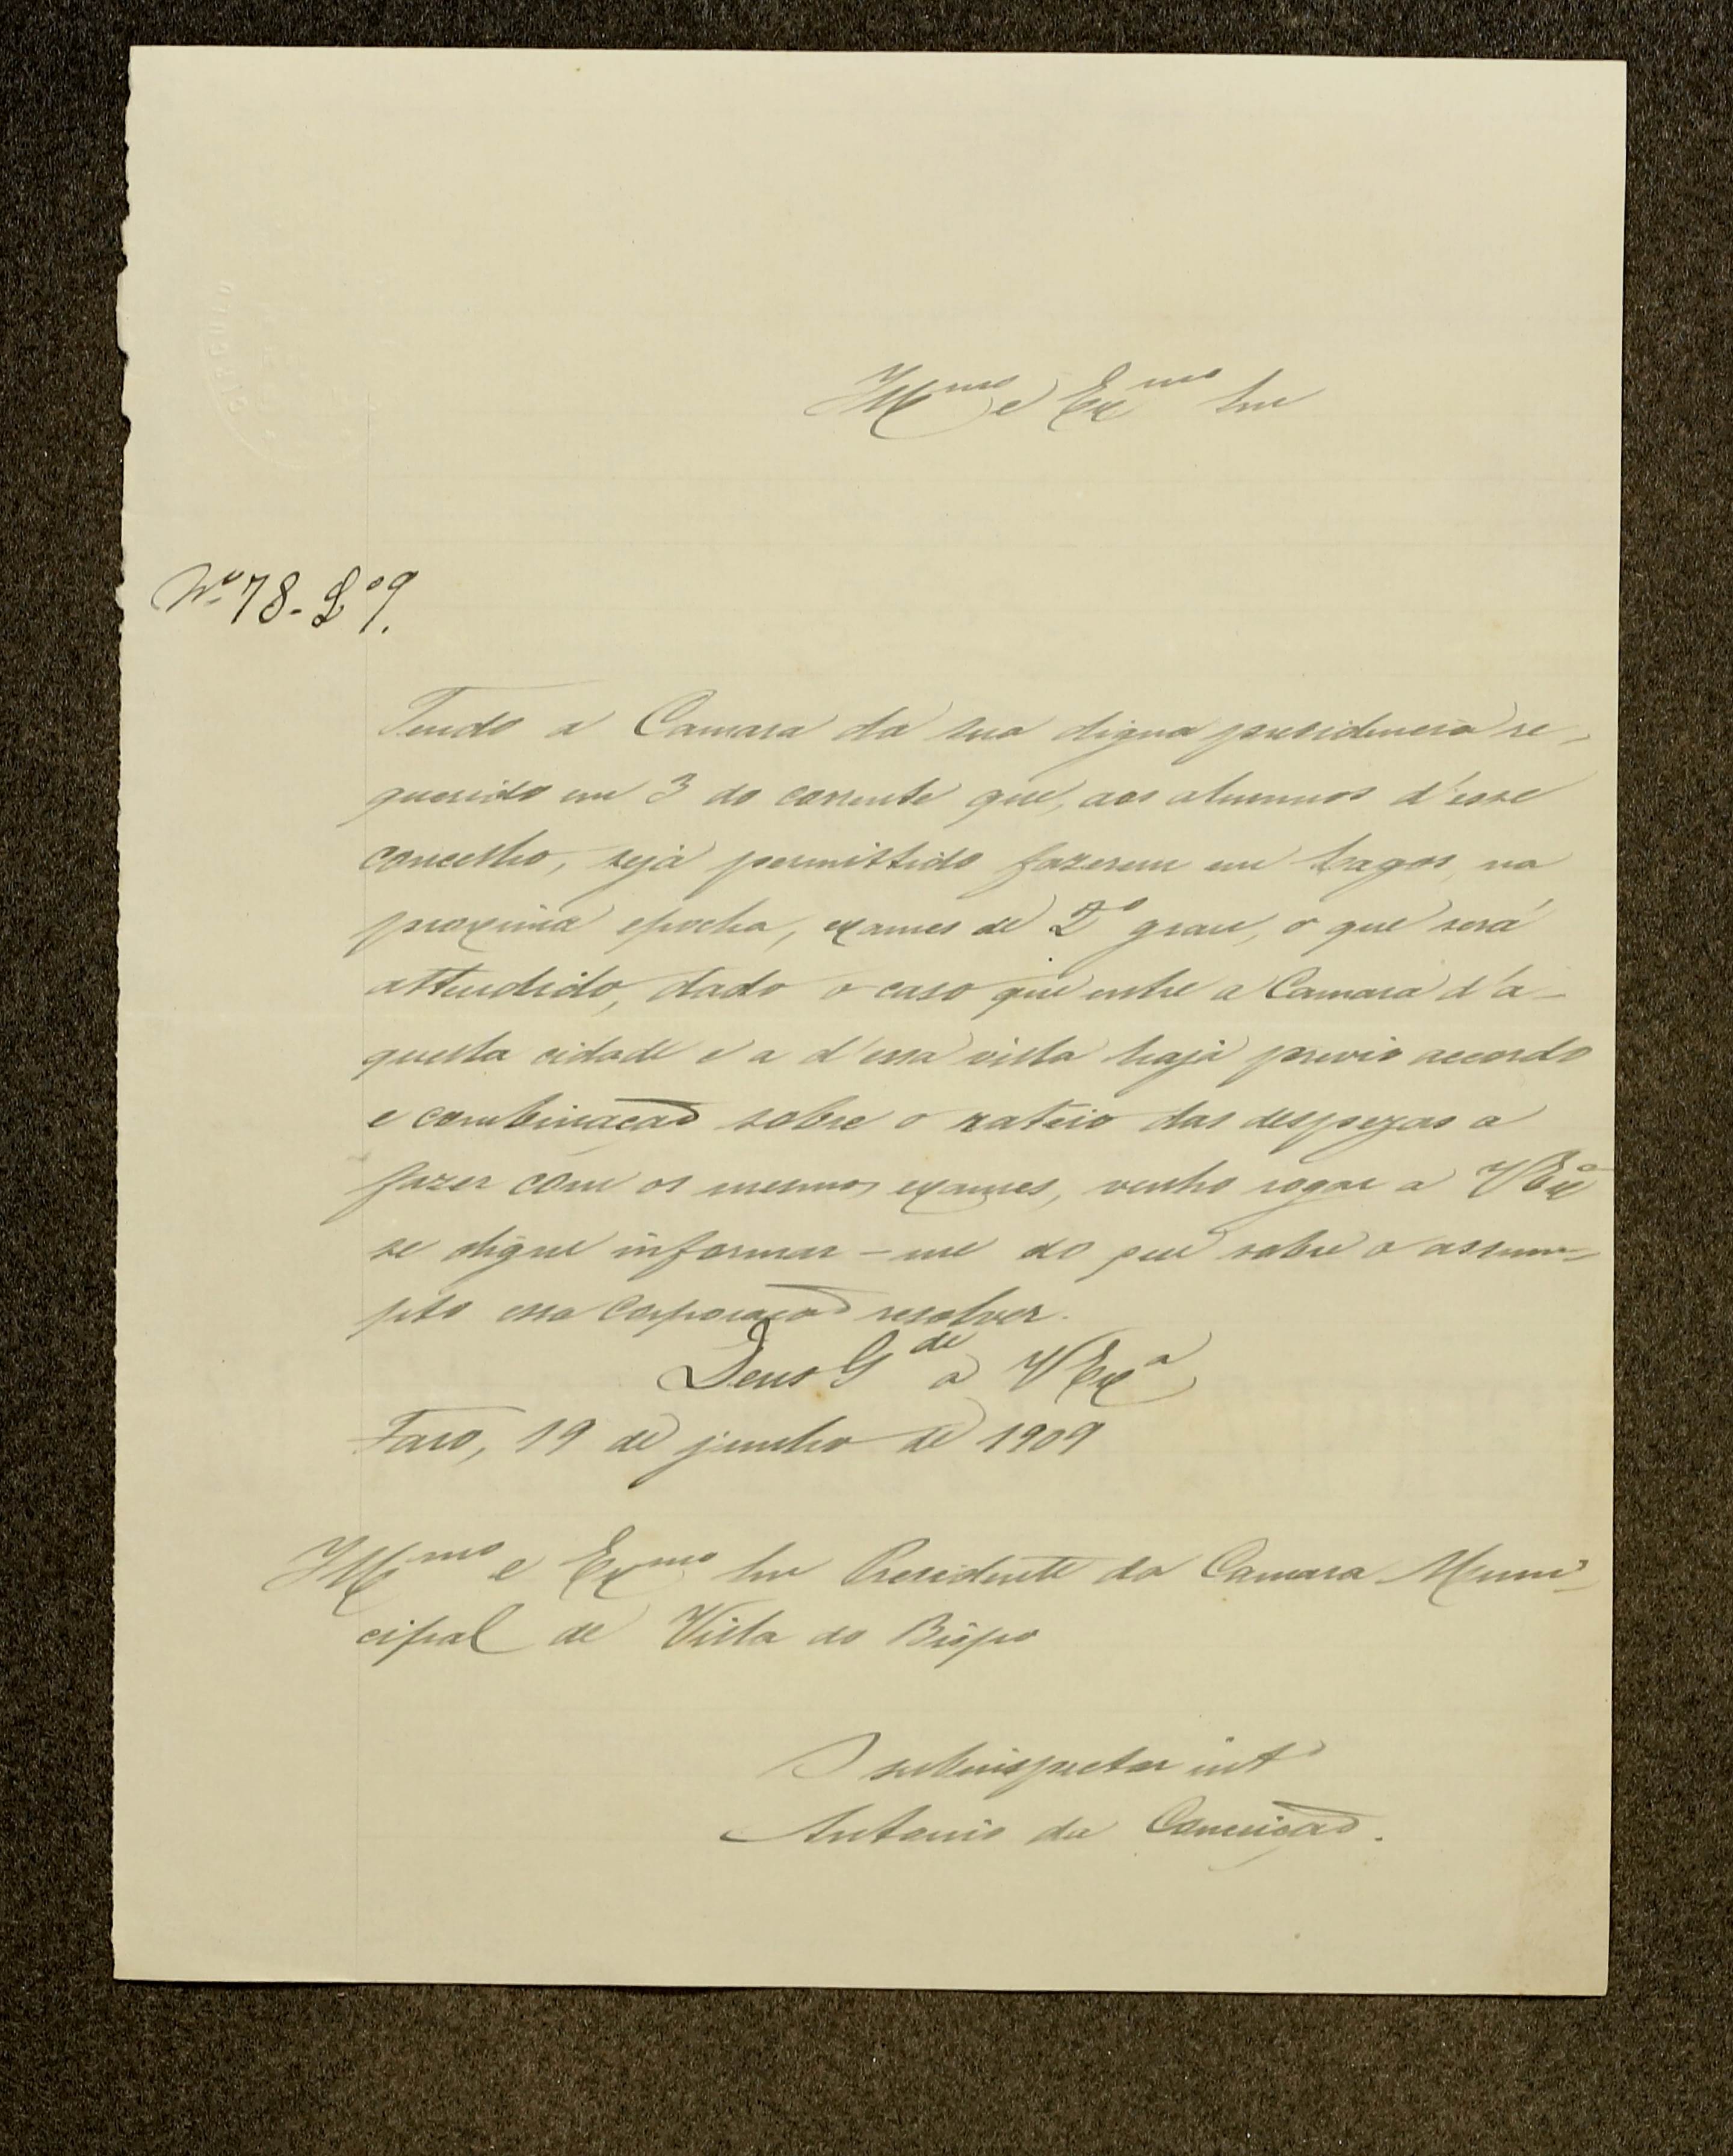 Illmo e Exmo Snr
Nº 78-Lº 9.
Tendo a Camara da sua digna presidencia re-
querido em 3 do corrente que, aos alumnos d'esse
concelho, seja permittido fazerem em Lagos, na
proxima epocha, exames de 2º grau, o que será
attendido, dado o caso que entre a Camara d'a-
quella cidade e a d'essa villa haja previo accordo
e combinação sobre o rateio das despezas a
fazer com os mesmos exames, venho rogar a V Exª
se digne informar-me do que sobre o assum-
pto essa corporação resolver.
Deus Gde a V Exª
Faro, 19 de junho de 1909
Illmo e Exmo Snr Presidente da Camara Muni-
cipal de Villa do Bispo
O subinspector intº
Antonio da Conceição.